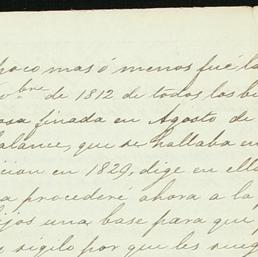 poco mas ó menos fué la
bre de 1812 de todos los bi
osa finada en Agosto de
balance, que se hallaba en
cion en 1829, dige en ella
a procederé ahora a la
ijos una base para que
sigilo por que les rueg